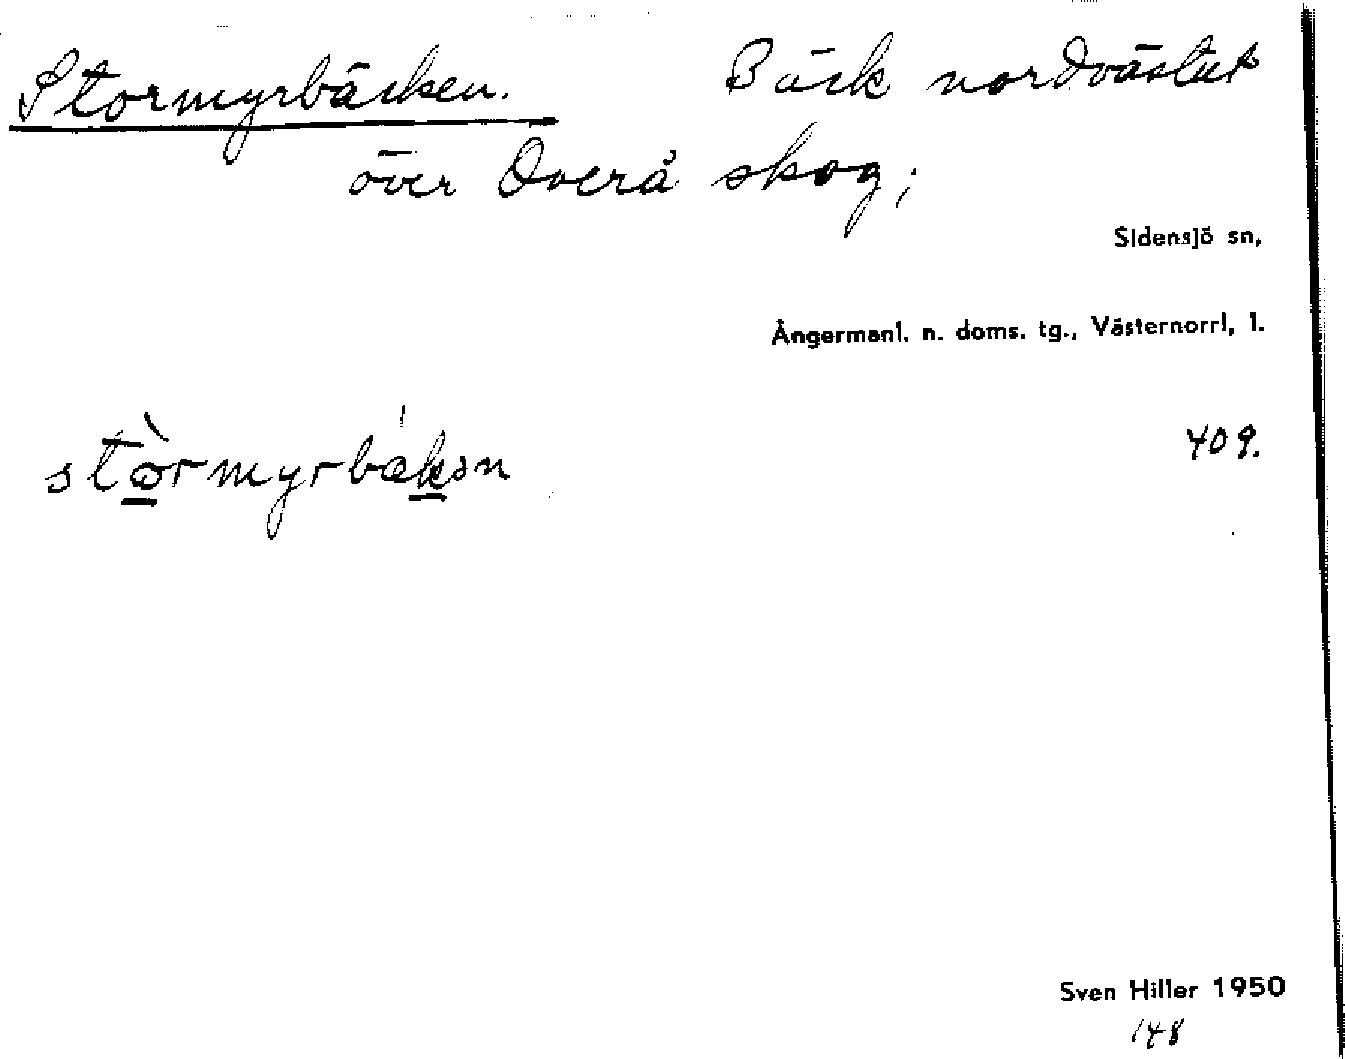 Stormyrbäcken. Bäck nordvästut
över Överå skog;
Sidensjö sn,
Ångermanl. n. doms. tg., Västernorrl. l.
409.
stòrmyrbækən
Sven Hiller 1950
148